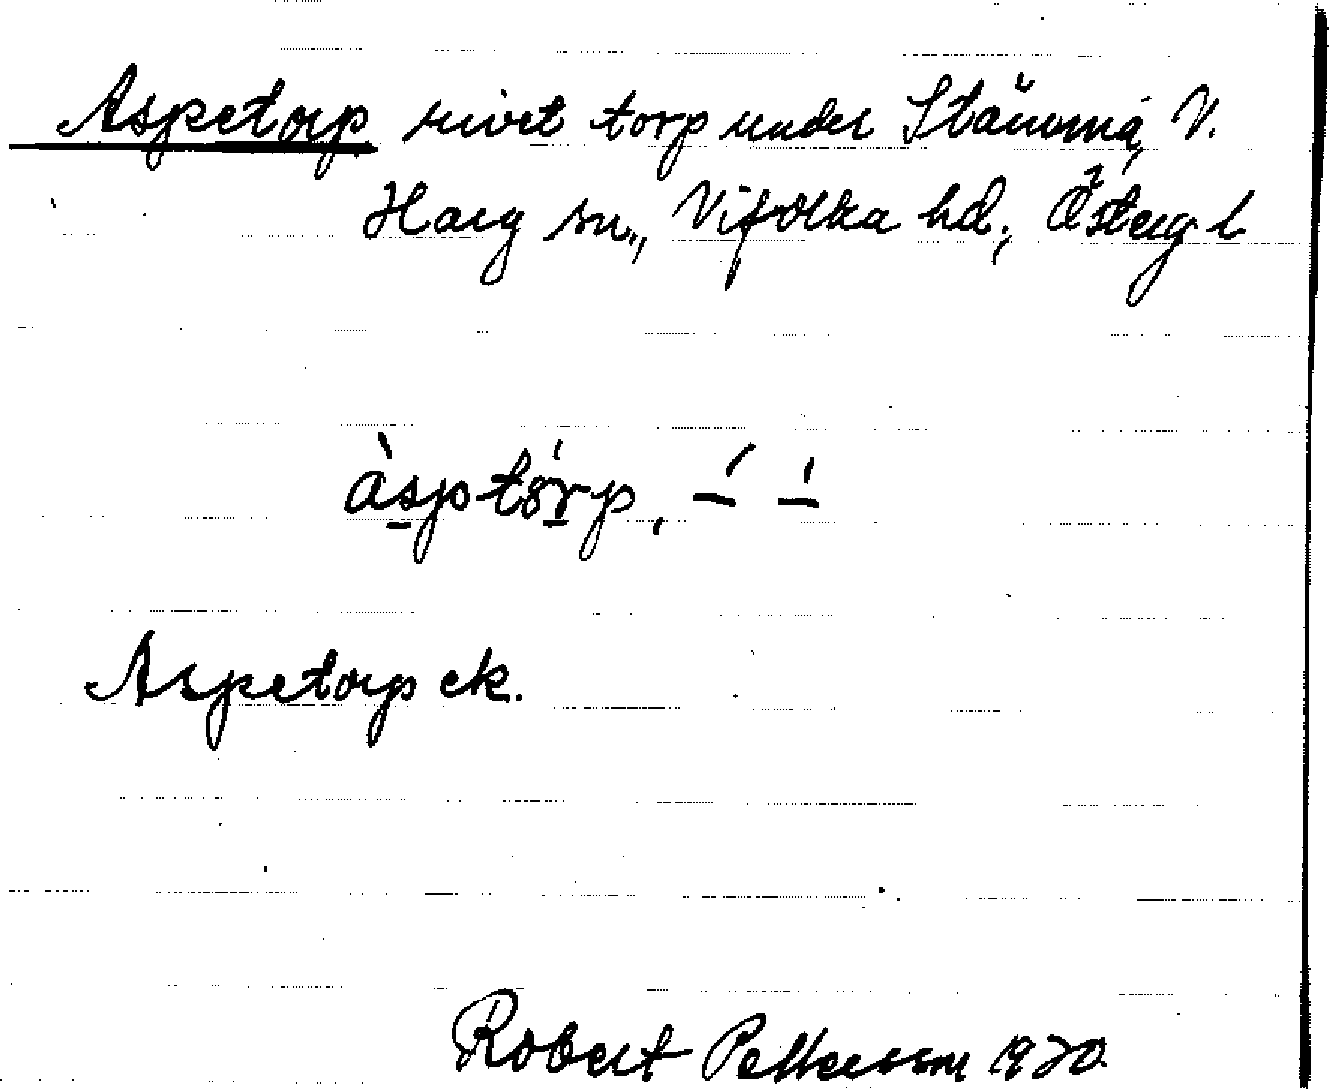 Aspetorp rivet torp under Stämma, V.
Harg sn., Vifolka hd., Östergl
àsptórp,
Aspetorp ek.
Robert Pettersson 1920